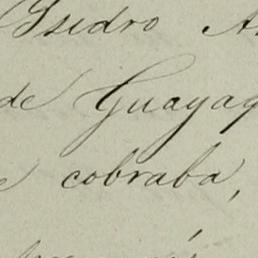 Isidro A
de Guayaq
cobraba,